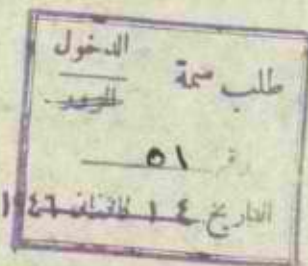 طلب سمة الدخول
المرور
رقم ٥١
التاريخ ١٤ كانون ١٩٤٦